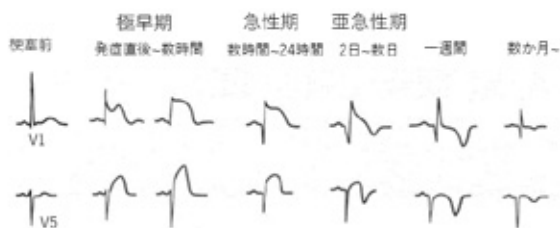 極早期 急性期 亜急性期
梗塞前 発症直後~数時間 数時間~24時間 2日~数日 一週間 数か月~
V1
V5